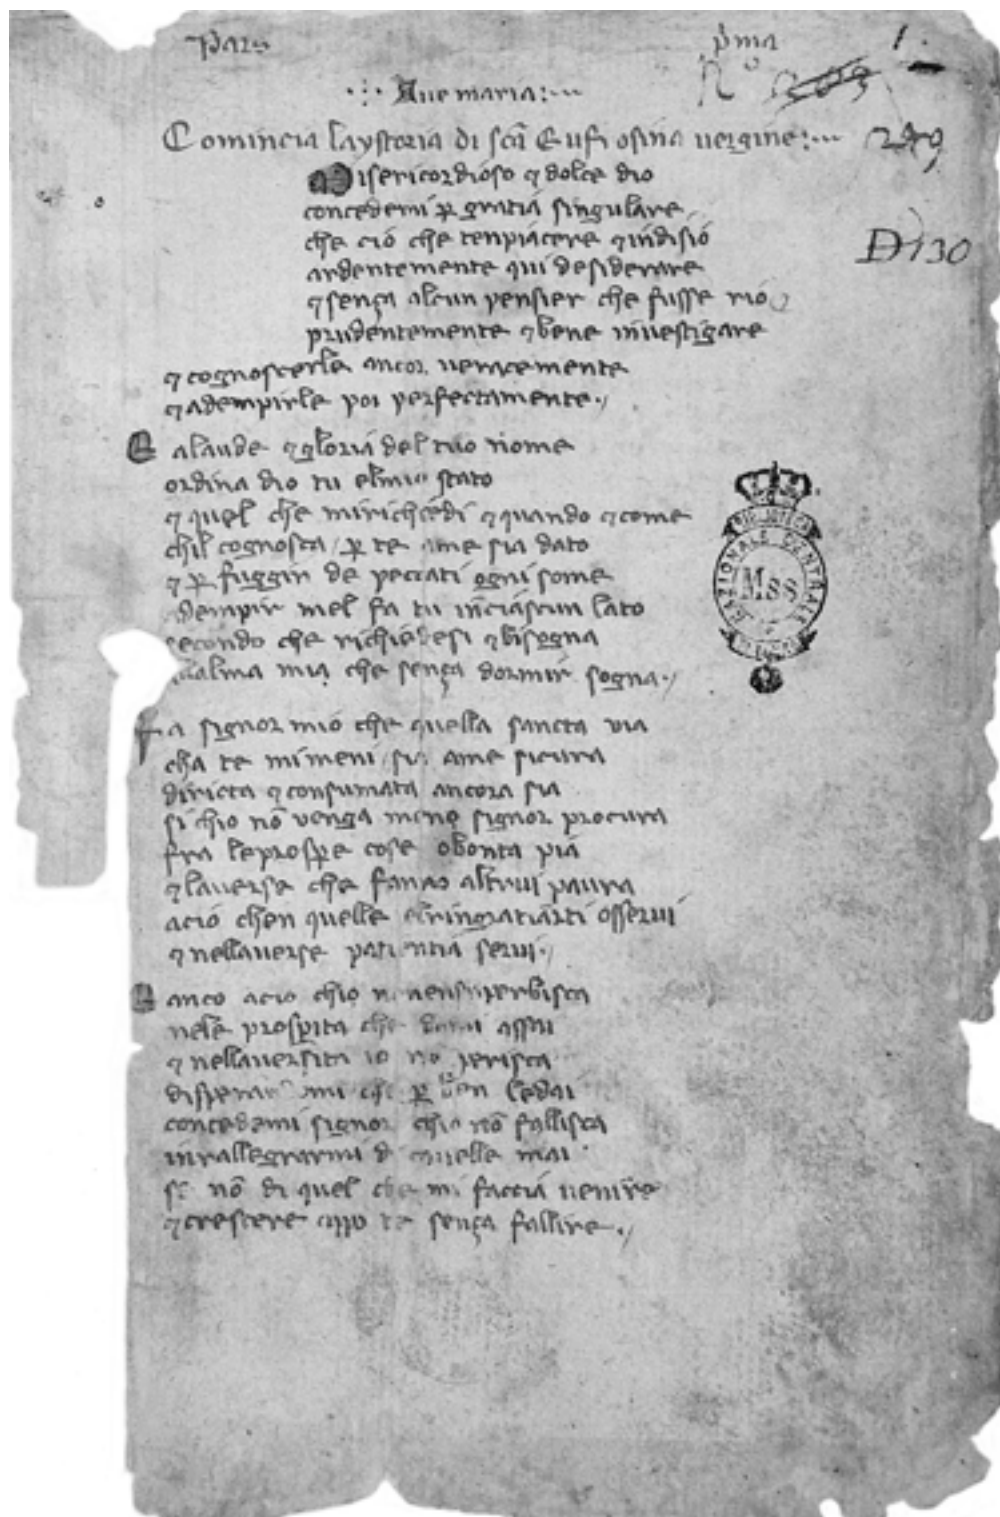 Pars
pma 1.
Nº 203
Aue maria:
Comincia laystoria di scã Eufrosina uergine: 249
Misericordioso ⁊ dolce dio
concedemi ꝑ gratia singulare
che ciò che tenpiacere ⁊ indisiò
D 130
ardentemente qui desiderare
⁊ sença alcun pensier che fusse rio
prudentemente ⁊ bene inuestigare
⁊ cognoscerle ancor ueracemente
⁊ adempirle poi perfectamente.
E a laude ⁊ gloria del tuo nome
ordina dio tu elmio stato
⁊ quel che mirichiedi ⁊ quando ⁊ come
chil cognosca ꝑ te ame sia dato
⁊ ꝑ fuggir de peccati ogni some
adempir mel fa tu inciascun lato
secondo che richiedesi ⁊ bisogna
alma mia che sença dormir sogna.
Fa signor mio che quella sancta via
cha te mimeni sia ame sicura
diricta ⁊ consumata ancora sia
si chio nõ venga meno signor procura
fra leprospe cose o bonta pia
⁊ lauerse che fanno altrui paura
acio chen quelle elringratiarti osserui
⁊ nellauerse patientia serui.
E anco acio chio nonensuperbisca
nele prospita che dami assai
⁊ nellauersita io nõ perisca
mi che ꝑ ben ledai
concedemi signor chio nõ fallisca
inrallegrarmi di quelle mai
se nõ di quel che mi faccia uenire
⁊ crescere appo te sença fallire.
BIBLIOTECA
NAZIONALE CENTRALE
Mss